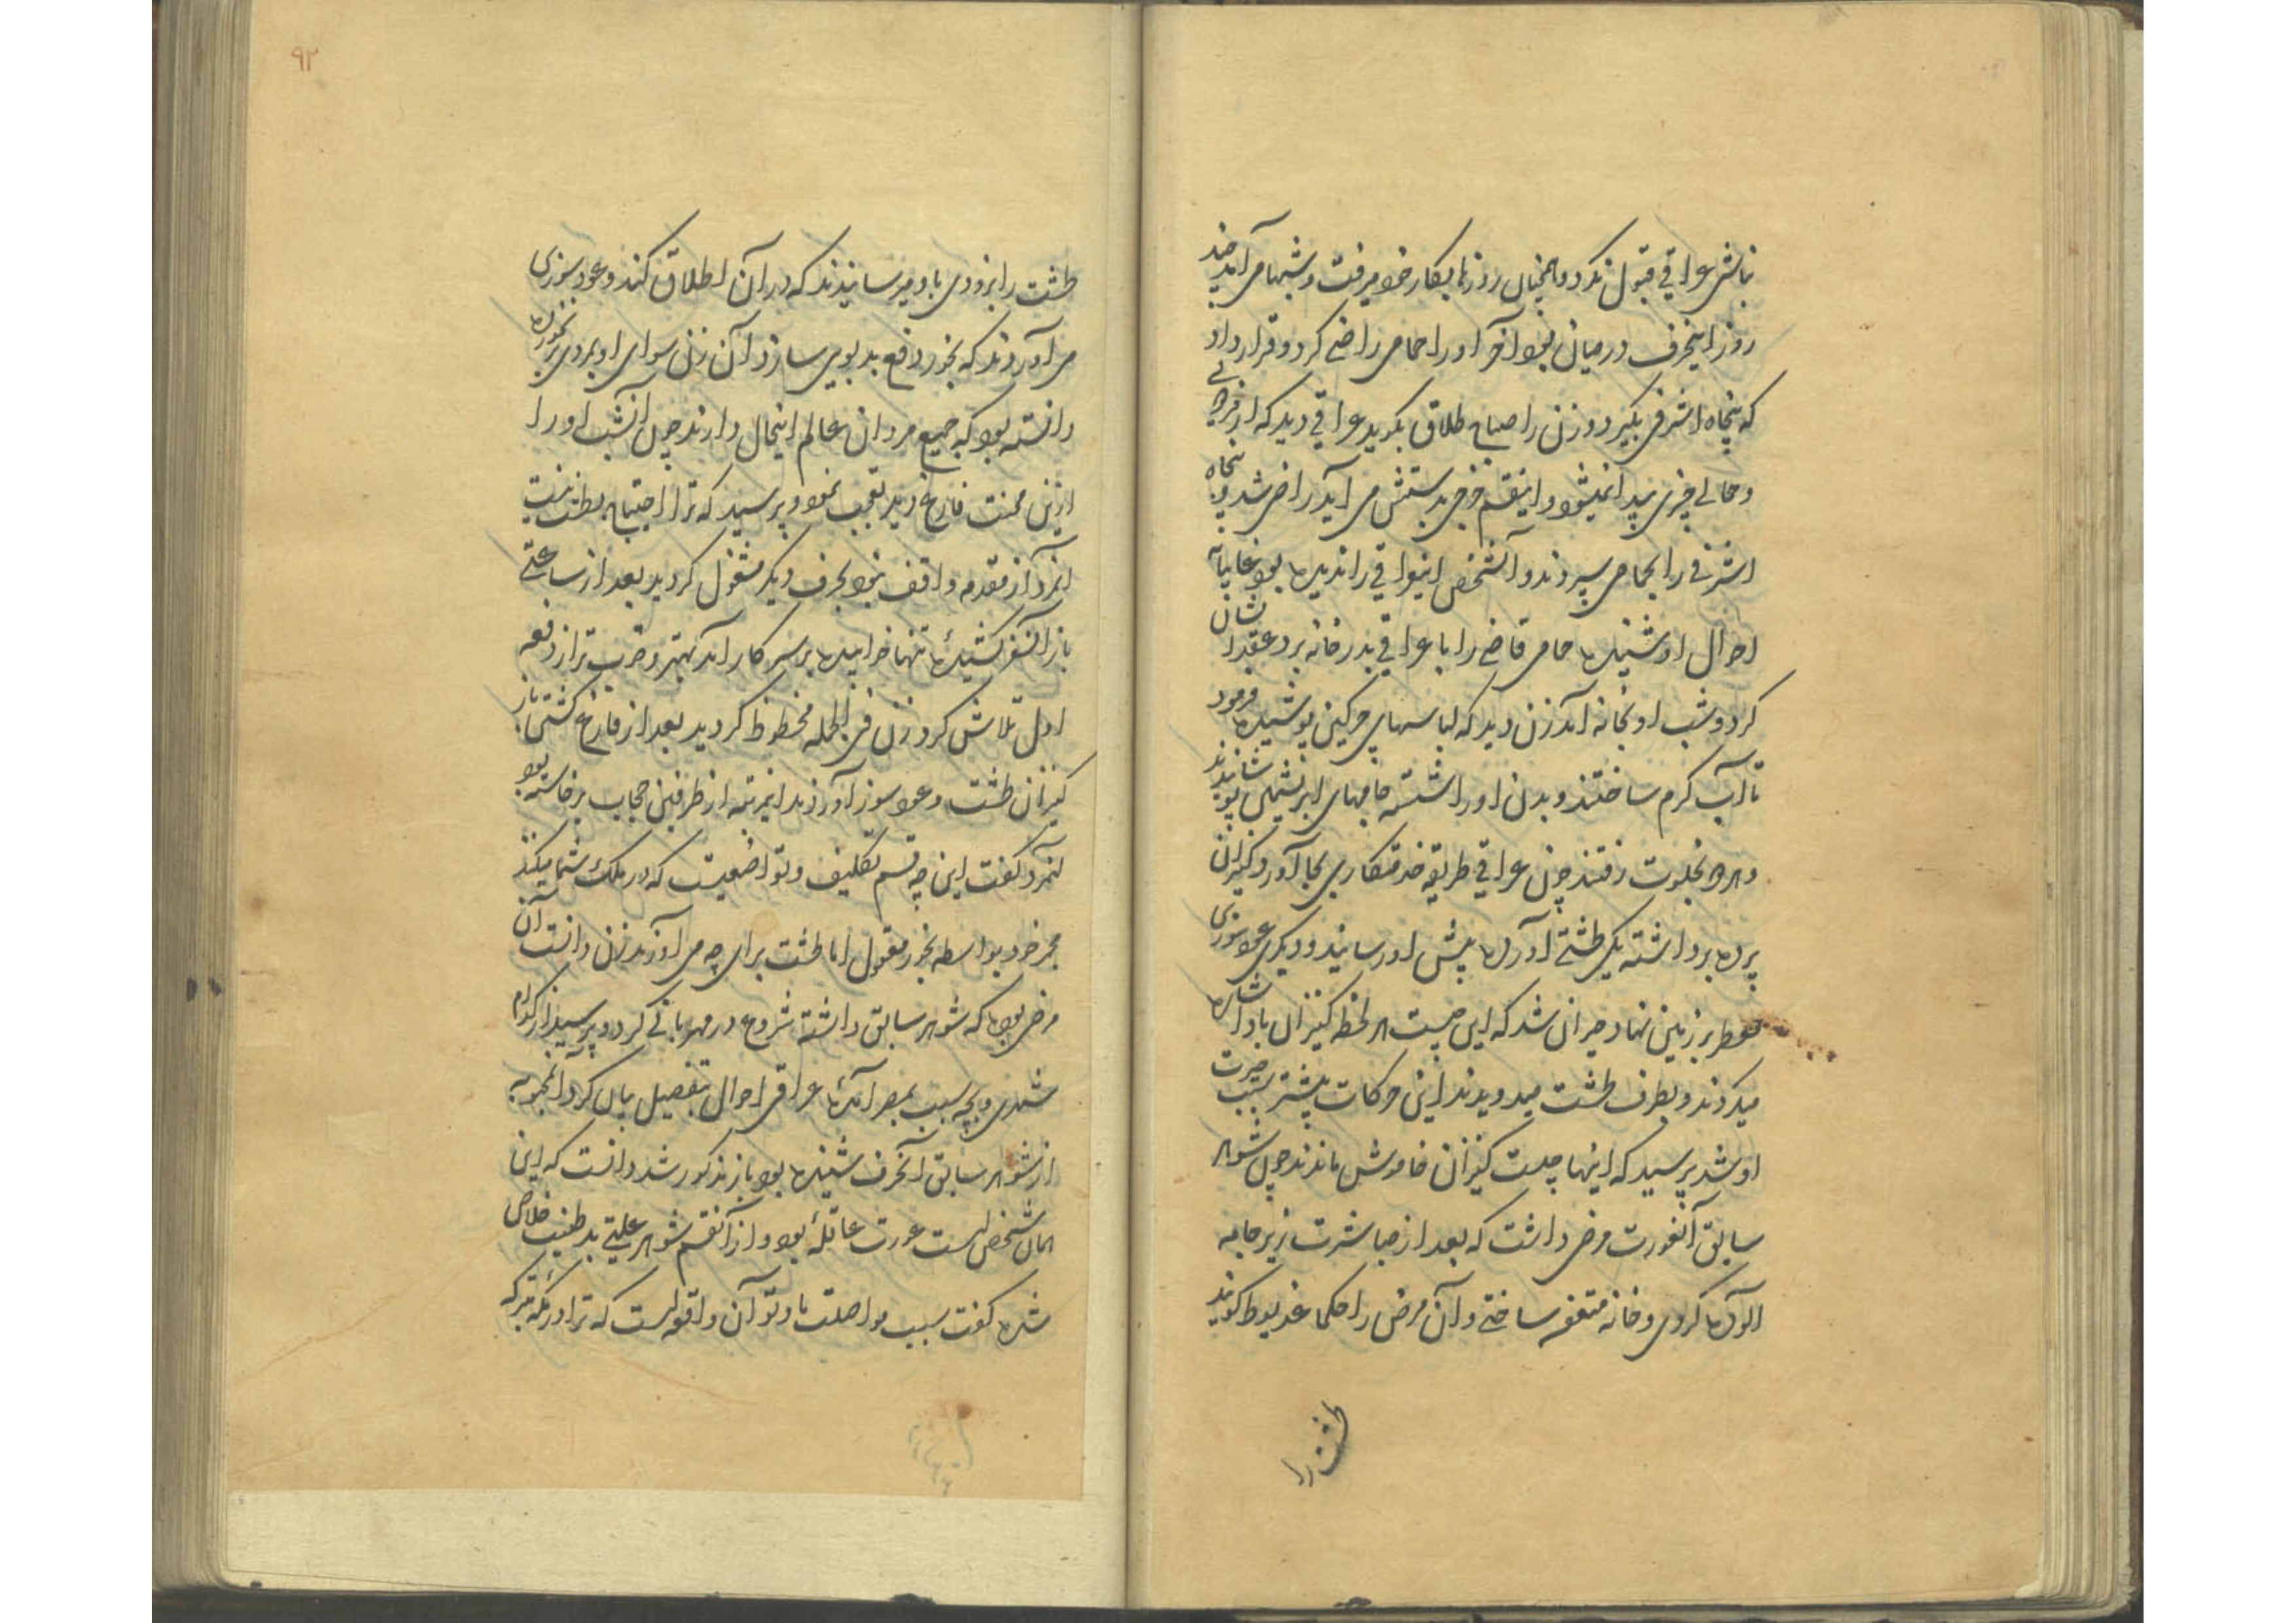 نباشی عراقی قبول نکرد و همچنان روزها بکار خود میرفت و شبها می آمد چند
روز اینحرف در میان بود آخر او را حمامی راضی کرد و قرار داد
که پنجاه اشرفی بگیرد و زن را صباح طلاق بگوید عراقی دید که از مزدوری
و حمالی چیزی پیدا نمیشود و اینقسم خرجی بدستش می آید راضی شد و پنجاه
اشرفی را بحمامی سپردند و آنشخص اینعراقی را ندیده بود غایبانه
احوال او شنیده حمامی قاضی را با عراقی بدر خانه برد عقد ایشان
کرد و شب او بخانه آمد زن دید که لباسهای چرکین پوشیده فرمود
تا آب گرم ساختند و بدن او را شسته جامهای ابریشمی پوشانیدند
و هر دو بخلوت رفتند چون عراقی طریقه خدمتکاری بجا آورد کنیزان
پرده برداشته یکی طشتی آورده پیش او رسانید و دیگری عود سوزی
معطر بر زمین نهاد حیران شد که این چیست هر لحظه کنیزان باو اشاره
میکردند و بطرف طشت میدویدند این حرکات بیشتر سبب حیرت
او شد پرسید که اینها چیست کنیزان خاموش ماندند چون شوهر
سابق آنعورت مرض داشت که بعد از مباشرت زیر جامه
آلوده کردی و خانه متعفن ساختی و آن مرض را حکما غدیوط گویند
طشت را
۹۲
طشت را بزودی باو میرسانیدند که در آن اطلاق کند و عود سوزی
می آوردند که بخور دفع بدبویی سازد آن زن سوای او بمردی نخورده
دانسته بود که جمیع مردان عالم اینحال دارند چون آنشب او را
ازین محنت فارغ دید تعجب نمود و پرسید که ترا احتیاج بطشت نیست
آنمرد از مقدمه واقف نبود بحرف دیگر مشغول گردید بعد از ساعتی
باز آنسفر کشیده تنها خوابیده بر سر کار آمد بهتر و خوب تر از دفعه
اول تلاش کرد زن فی الجمله محظوظ گردید بعد از فارغ گشتن باز
کنیزان طشت و عود سوز آوردند اینمرتبه از طرفین حجاب برخاسته بود
آنمرد گفت این چه قسم تکلیف و تواضعیست که در ملک شما میکنند
مجمر خود بواسطه بخور معقول اما طشت برای چه می آورند زن دانست آن
مرض بوده که شوهر سابق داشته شروع در مهربانی کرد و پرسید از کدام
شهری و بچه سبب بمصر آمده عراقی احوال بتفصیل بیان کرد آنمحبوبه
از شوهر سابق آنحرف شنیده بود باز مذکور شد دانست که این
همان شخص است عورت عاقله بود و از آنقسم شوهر علتی بد طینت خلاص
شده گفت سبب مواصلت ما و تو آن واقعه است که ترا در مکه متبرکه